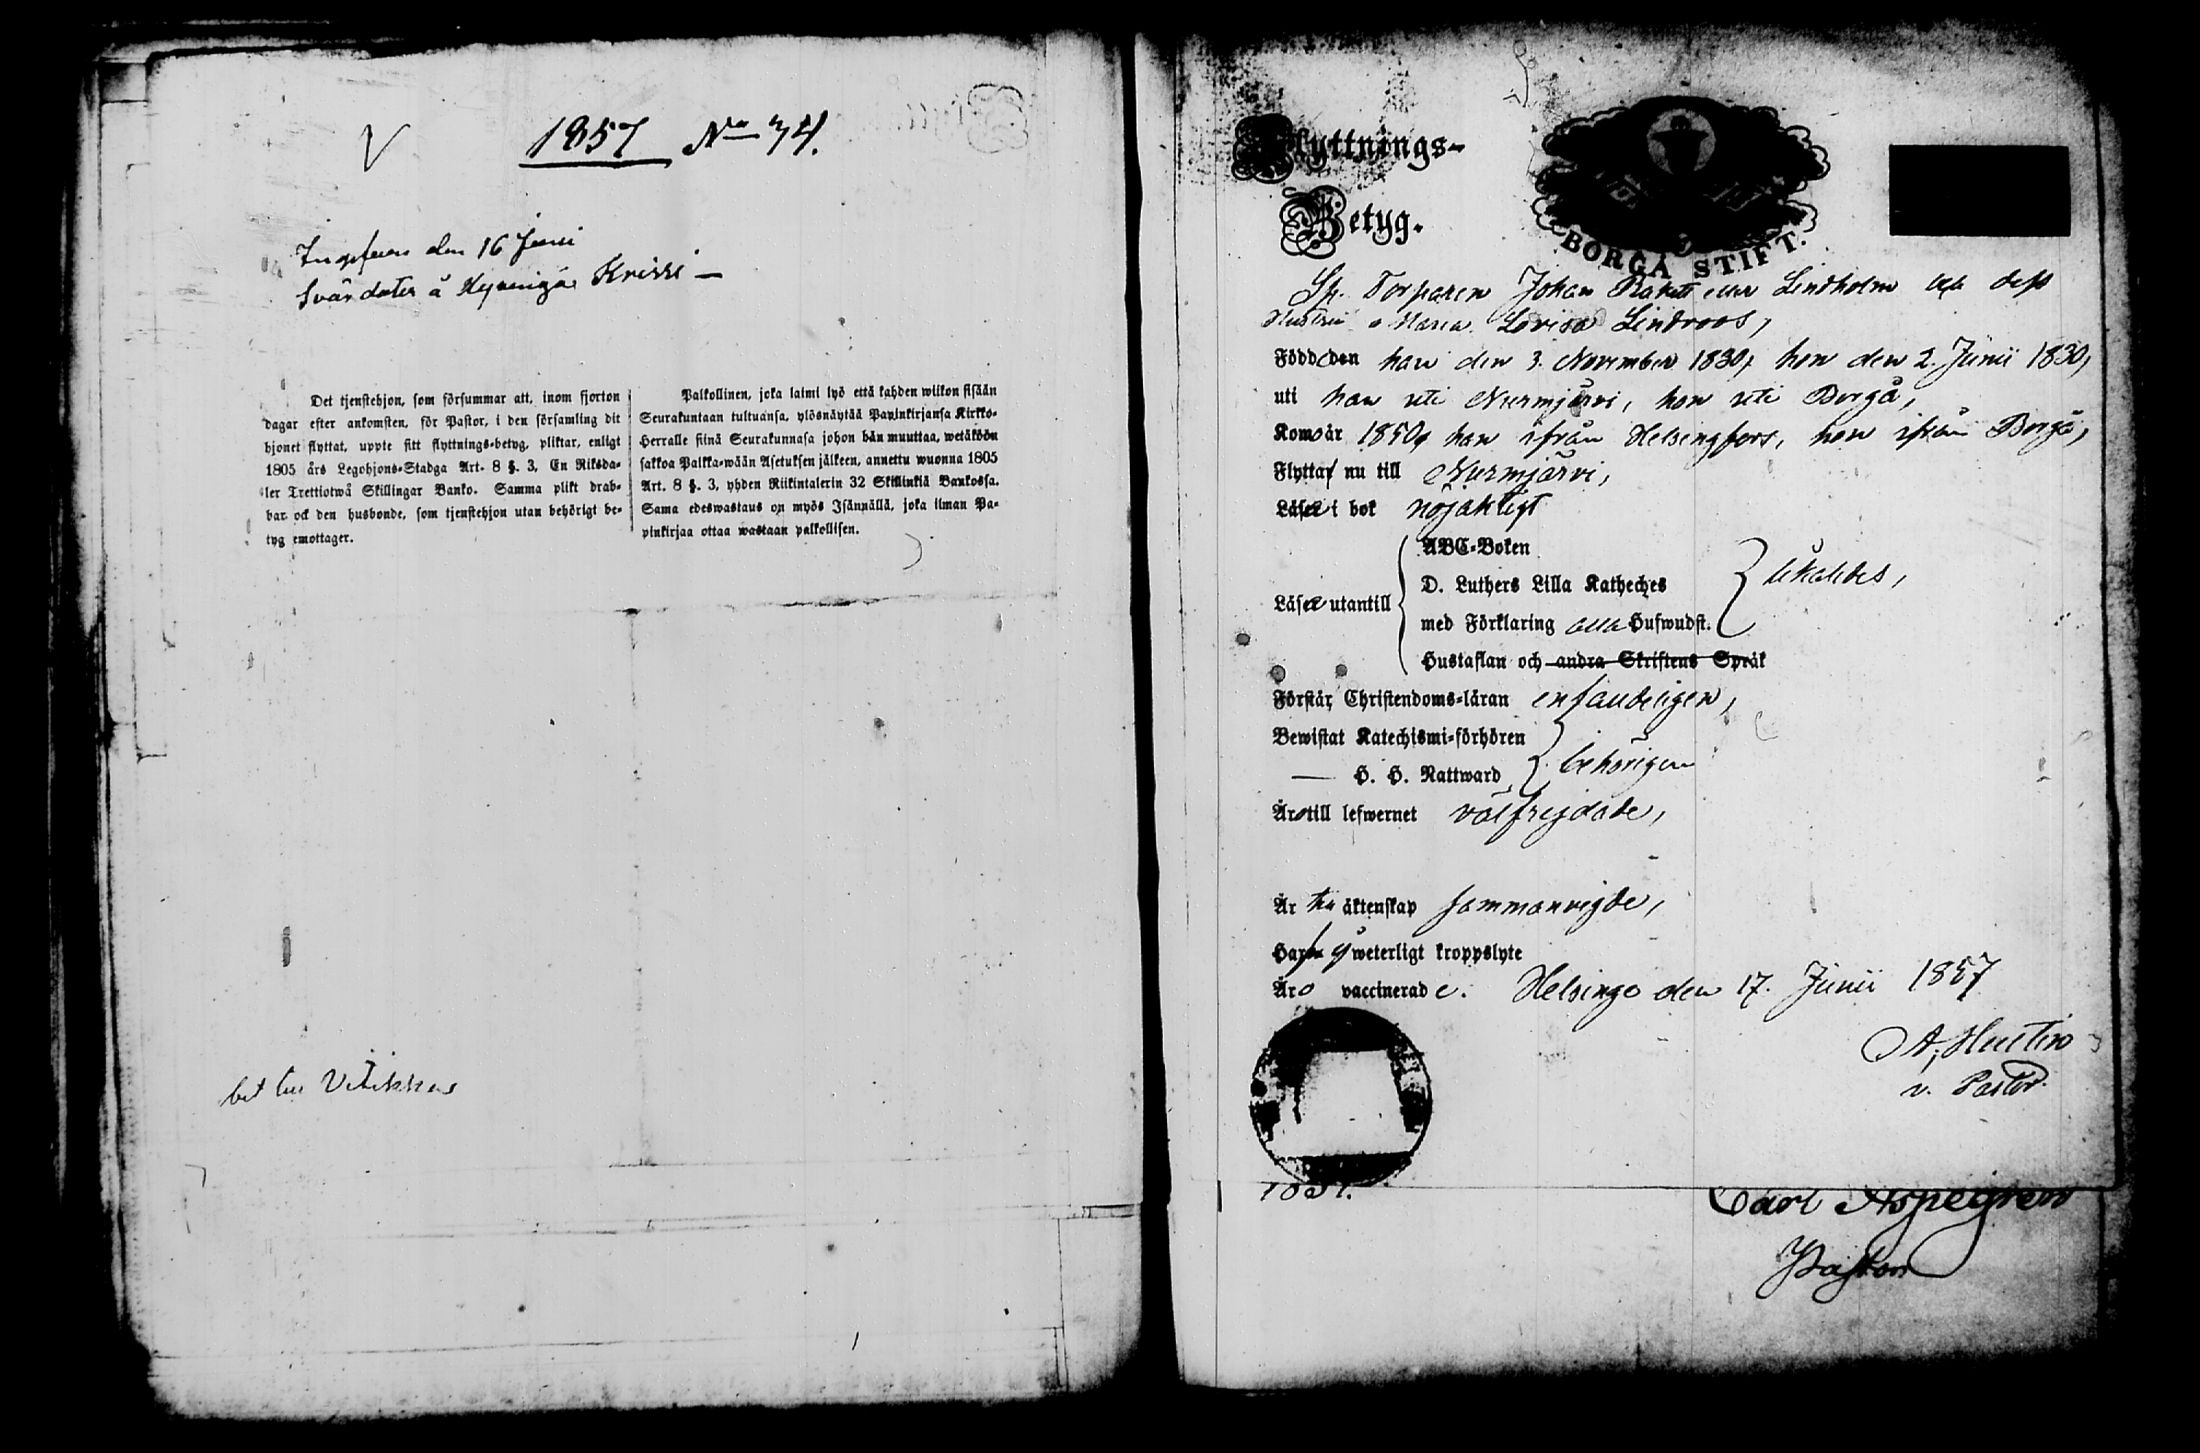 1857 No 74.
den 16 Junii
Svärdotter å Krissi —
Det tjenstehjon, som försummar att, inom fjorton
dagar efter ankomsten, för Pastor, i den församling dit
hjonet flyttat, uppte sitt flyttnings-betyg, pliktar, enligt
1805 års Legohjons-Stadga Art. 8 §. 3, En Riksda-
ler Trettiotwå Skillingar Banko. Samma plikt drab-
bar ock den husbonde, som tjenstehjon utan behörigt be-
tyg emottager.
Palkollinen, joka laimi lyö että kahden wiikon sisään
Seurakuntaan tultuansa, ylösnäytää Papinkirjansa Kirkko-
Herralle siinä Seurakunnasa johon hän muuttaa, wetäköön
sakkoa Palkka-wään Asetuksen jälkeen, annettu wuonna 1805
Art. 8 §. 3, yhden Riikintalerin 32 Skillinkiä Bankossa.
Sama edeswastaus on myös Isännällä, joka ilman Pa-
pinkirjaa ottaa wastaan palkollisen.
Flyttnings-
Betyg.
BORGÅ STIFT.
Torparen Johan Rakett eller Lindholm och dess
Hustru Maria Lovisa Lindroos,
Född e den han den 3. November 1830, hon den 2. Junii 1830,
uti han uti Nurmjärvi, hon uti Borgå,
Komo år 1850, han ifrån Helsingfors, hon ifrån Borgå,
Flytta nu till Nurmjärvi,
Läsa i bok nöjaktigt
ABC-Boken
D. Luthers Lilla Katheches
Läsa utantill
med Förklaring alla Hufwudst.
likaledes,
Hustaflan och andra Skriftens Språk
Förstår Christendoms-läran enfaldeligen,
Bewistat Katechismi-förhören
— H. H. Nattward
behörigen
Äro till lefwernet välfrejdade,
Är till äktenskap sammanvigde,
Hafva ej weterligt kroppslyte
Äro vaccinerade. Helsinge den 17. Junii 1857
A. Hustin
v. Pastor.
1857.
Carl Aspegren
Pastor